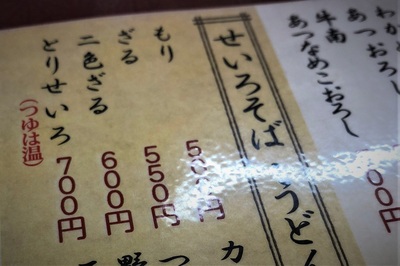 わか
おろし
あつおろし
牛南
あつなめこおろし
せいろそば・うどん
もり 500円
ざる 550円
二色ざる 600円
とりせいろ 700円
(つゆは温)
カ
つ
野